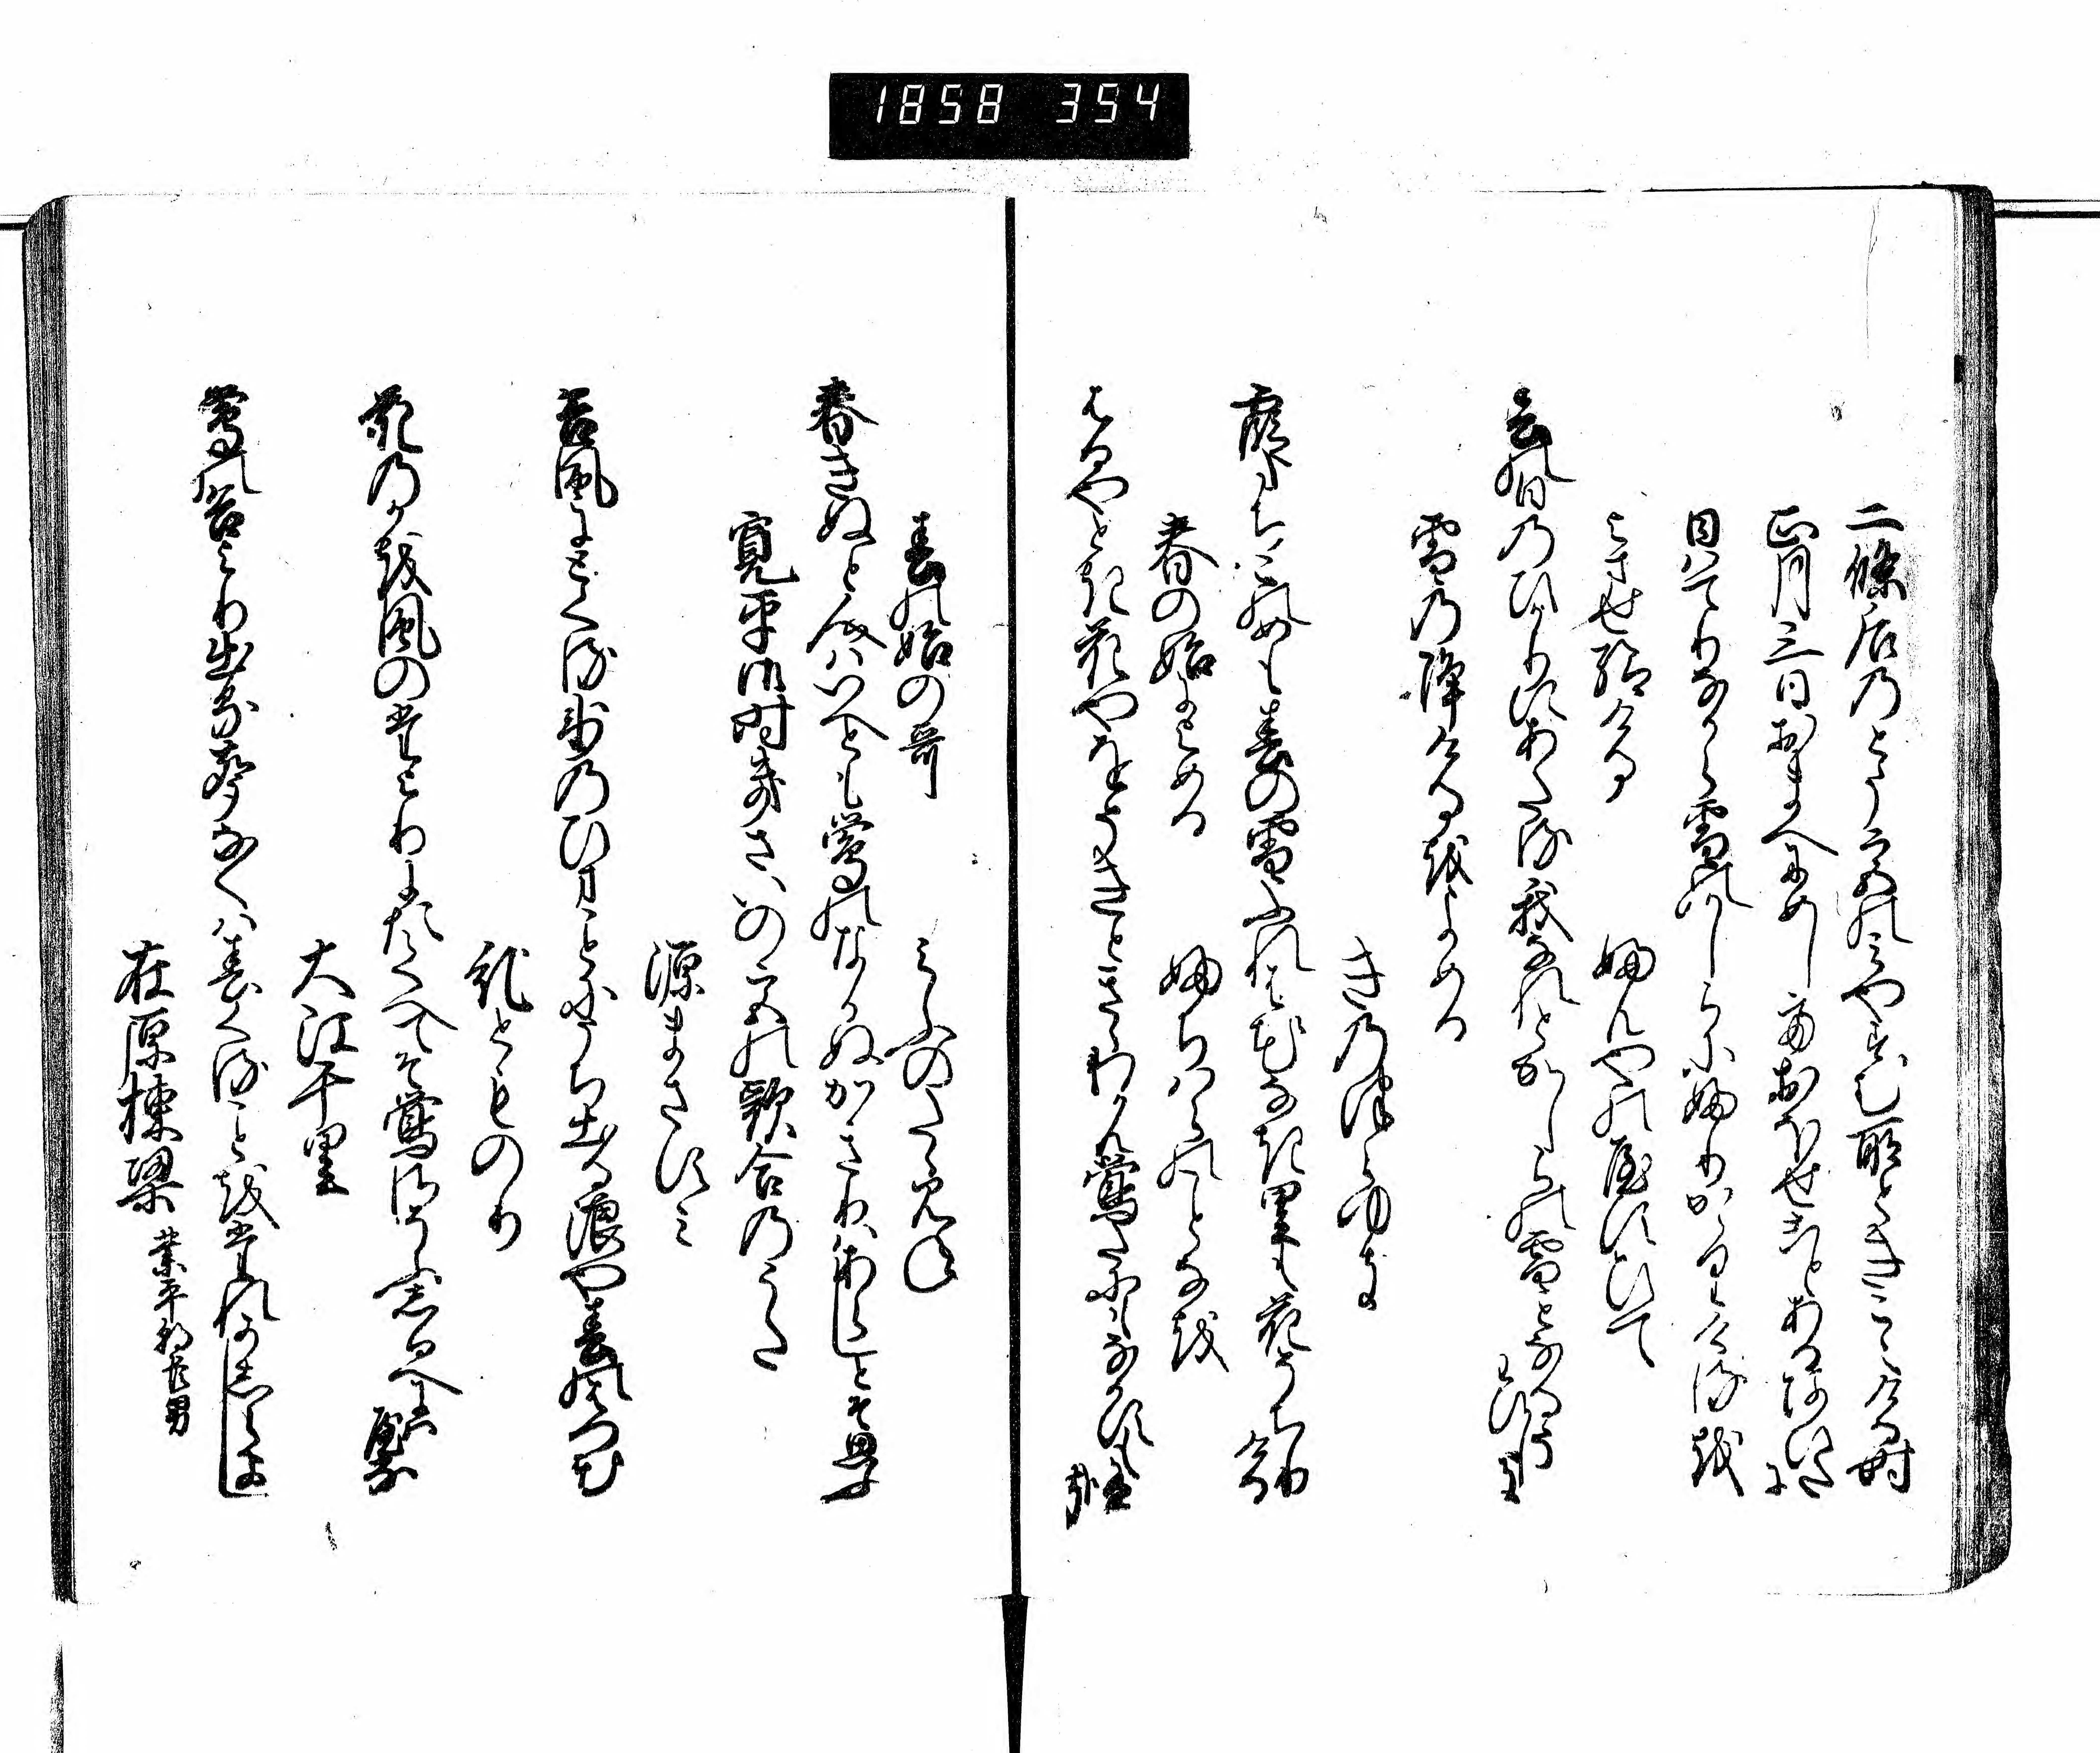 1858 354
二條后のとう宮のみやすむ所ときこえける時
正月三日おまへにめしておほせことあるあひたに
日はてりなから雪のかしらにふりかゝりけるを
よませ給ける
ふんやのやすひて
春の日のひかりにあたる我なれとかしらの雪となるそわひしき
雪の降けるをよめる
きのつらゆき
霞たちこのめも春の雪ふれは花なき里も花そちりける
春の始によめる
ふちはらのことなを
はるやとき花やをそきときゝわかん鶯たにもなかすも有哉
春の始の哥
みふのたゝみね
春きぬと人はいへとも鶯のなかぬかきりはあらしとそ思ふ
寛平御時きさいの宮の歌合のうた
源まさすみ
谷風にとくる氷のひまことにうち出る浪や春のはつ花
紀とものり
花のかを風のたよりにたくへてそ鶯さそふしるへにはやる
大江千里
鶯の谷より出る声なくは春くることをたれかしらまし
在原棟梁 業平朝臣男